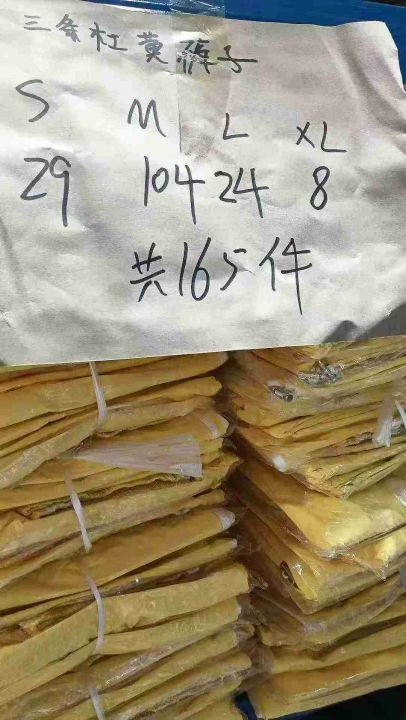 三条杠黄裤子
S M L XL
29 104 24 8
共165件